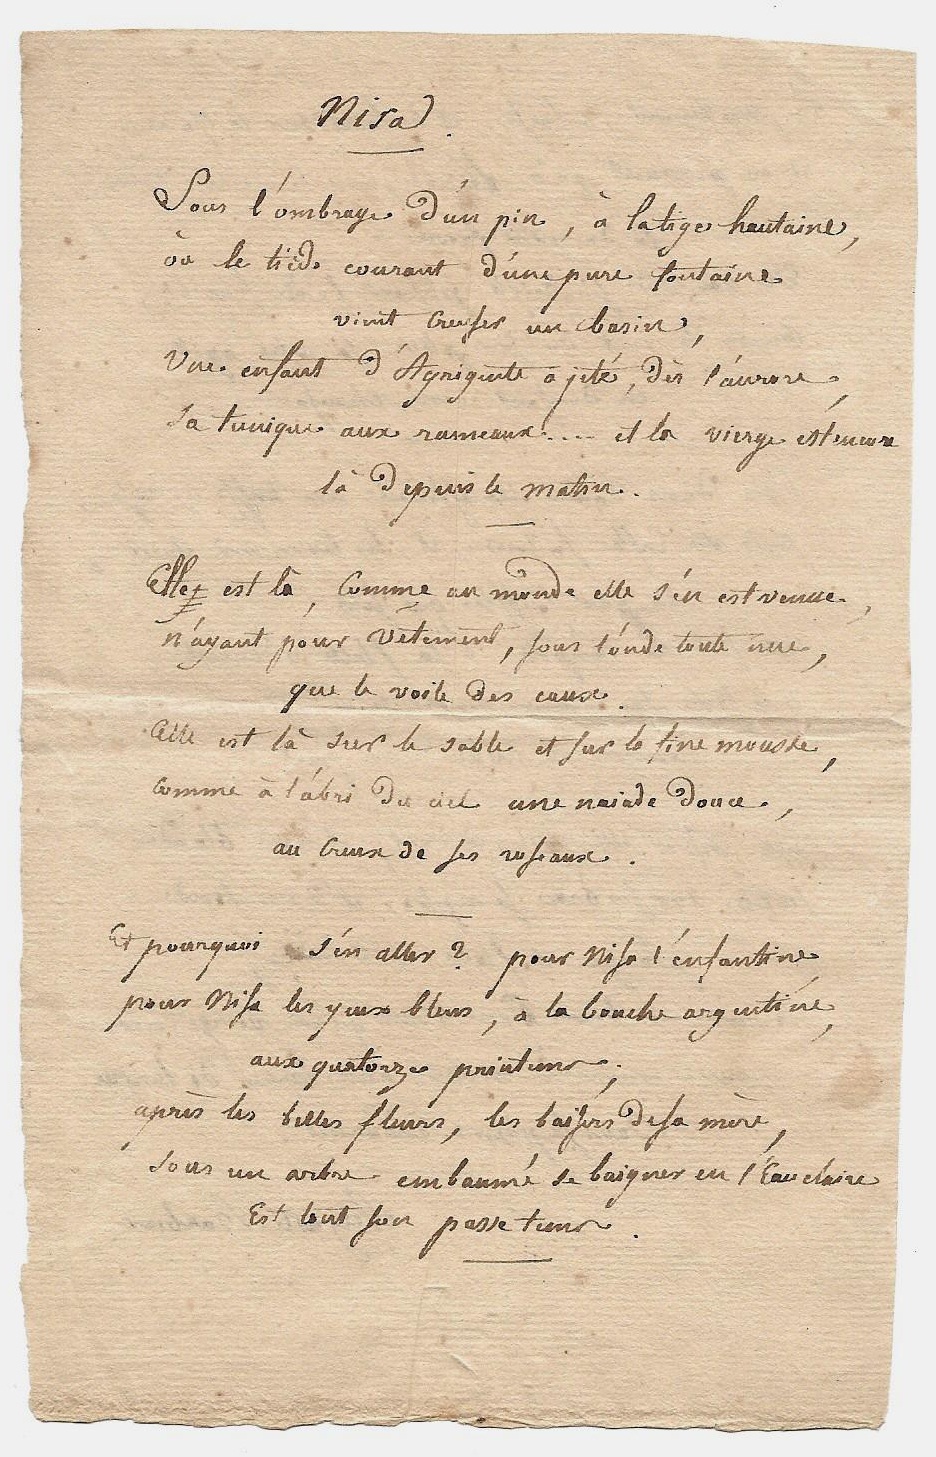 Nisa.
Sous l'ombrage d'un pin, à la tige hautaine,
où le tiède courant d'une pure fontaine
vient creuser un basin,
Une enfant d'Agrigente a jeté, dès l'aurore,
sa tunique aux rameaux.... et la vierge est encore
là depuis le matin.
Elle est là, comme au monde elle s'en est venue,
n'ayant pour vêtement, sous l'onde toute nue,
que le voile des eaux.
Elle est là sur le sable et sur la fine mousse,
comme à l'abri du ciel une naiade douce,
au creux de ses roseaux.
Et pourquoi s'en aller? pour Nisa l'enfantine
pour Nisa les yeux bleus, à la bouche argentine,
aux quatorze printems,
après les belles fleurs, les baisers de sa mère,
sous un arbre embaumé se baigner en l'Eau claire
Est tout son passetems.